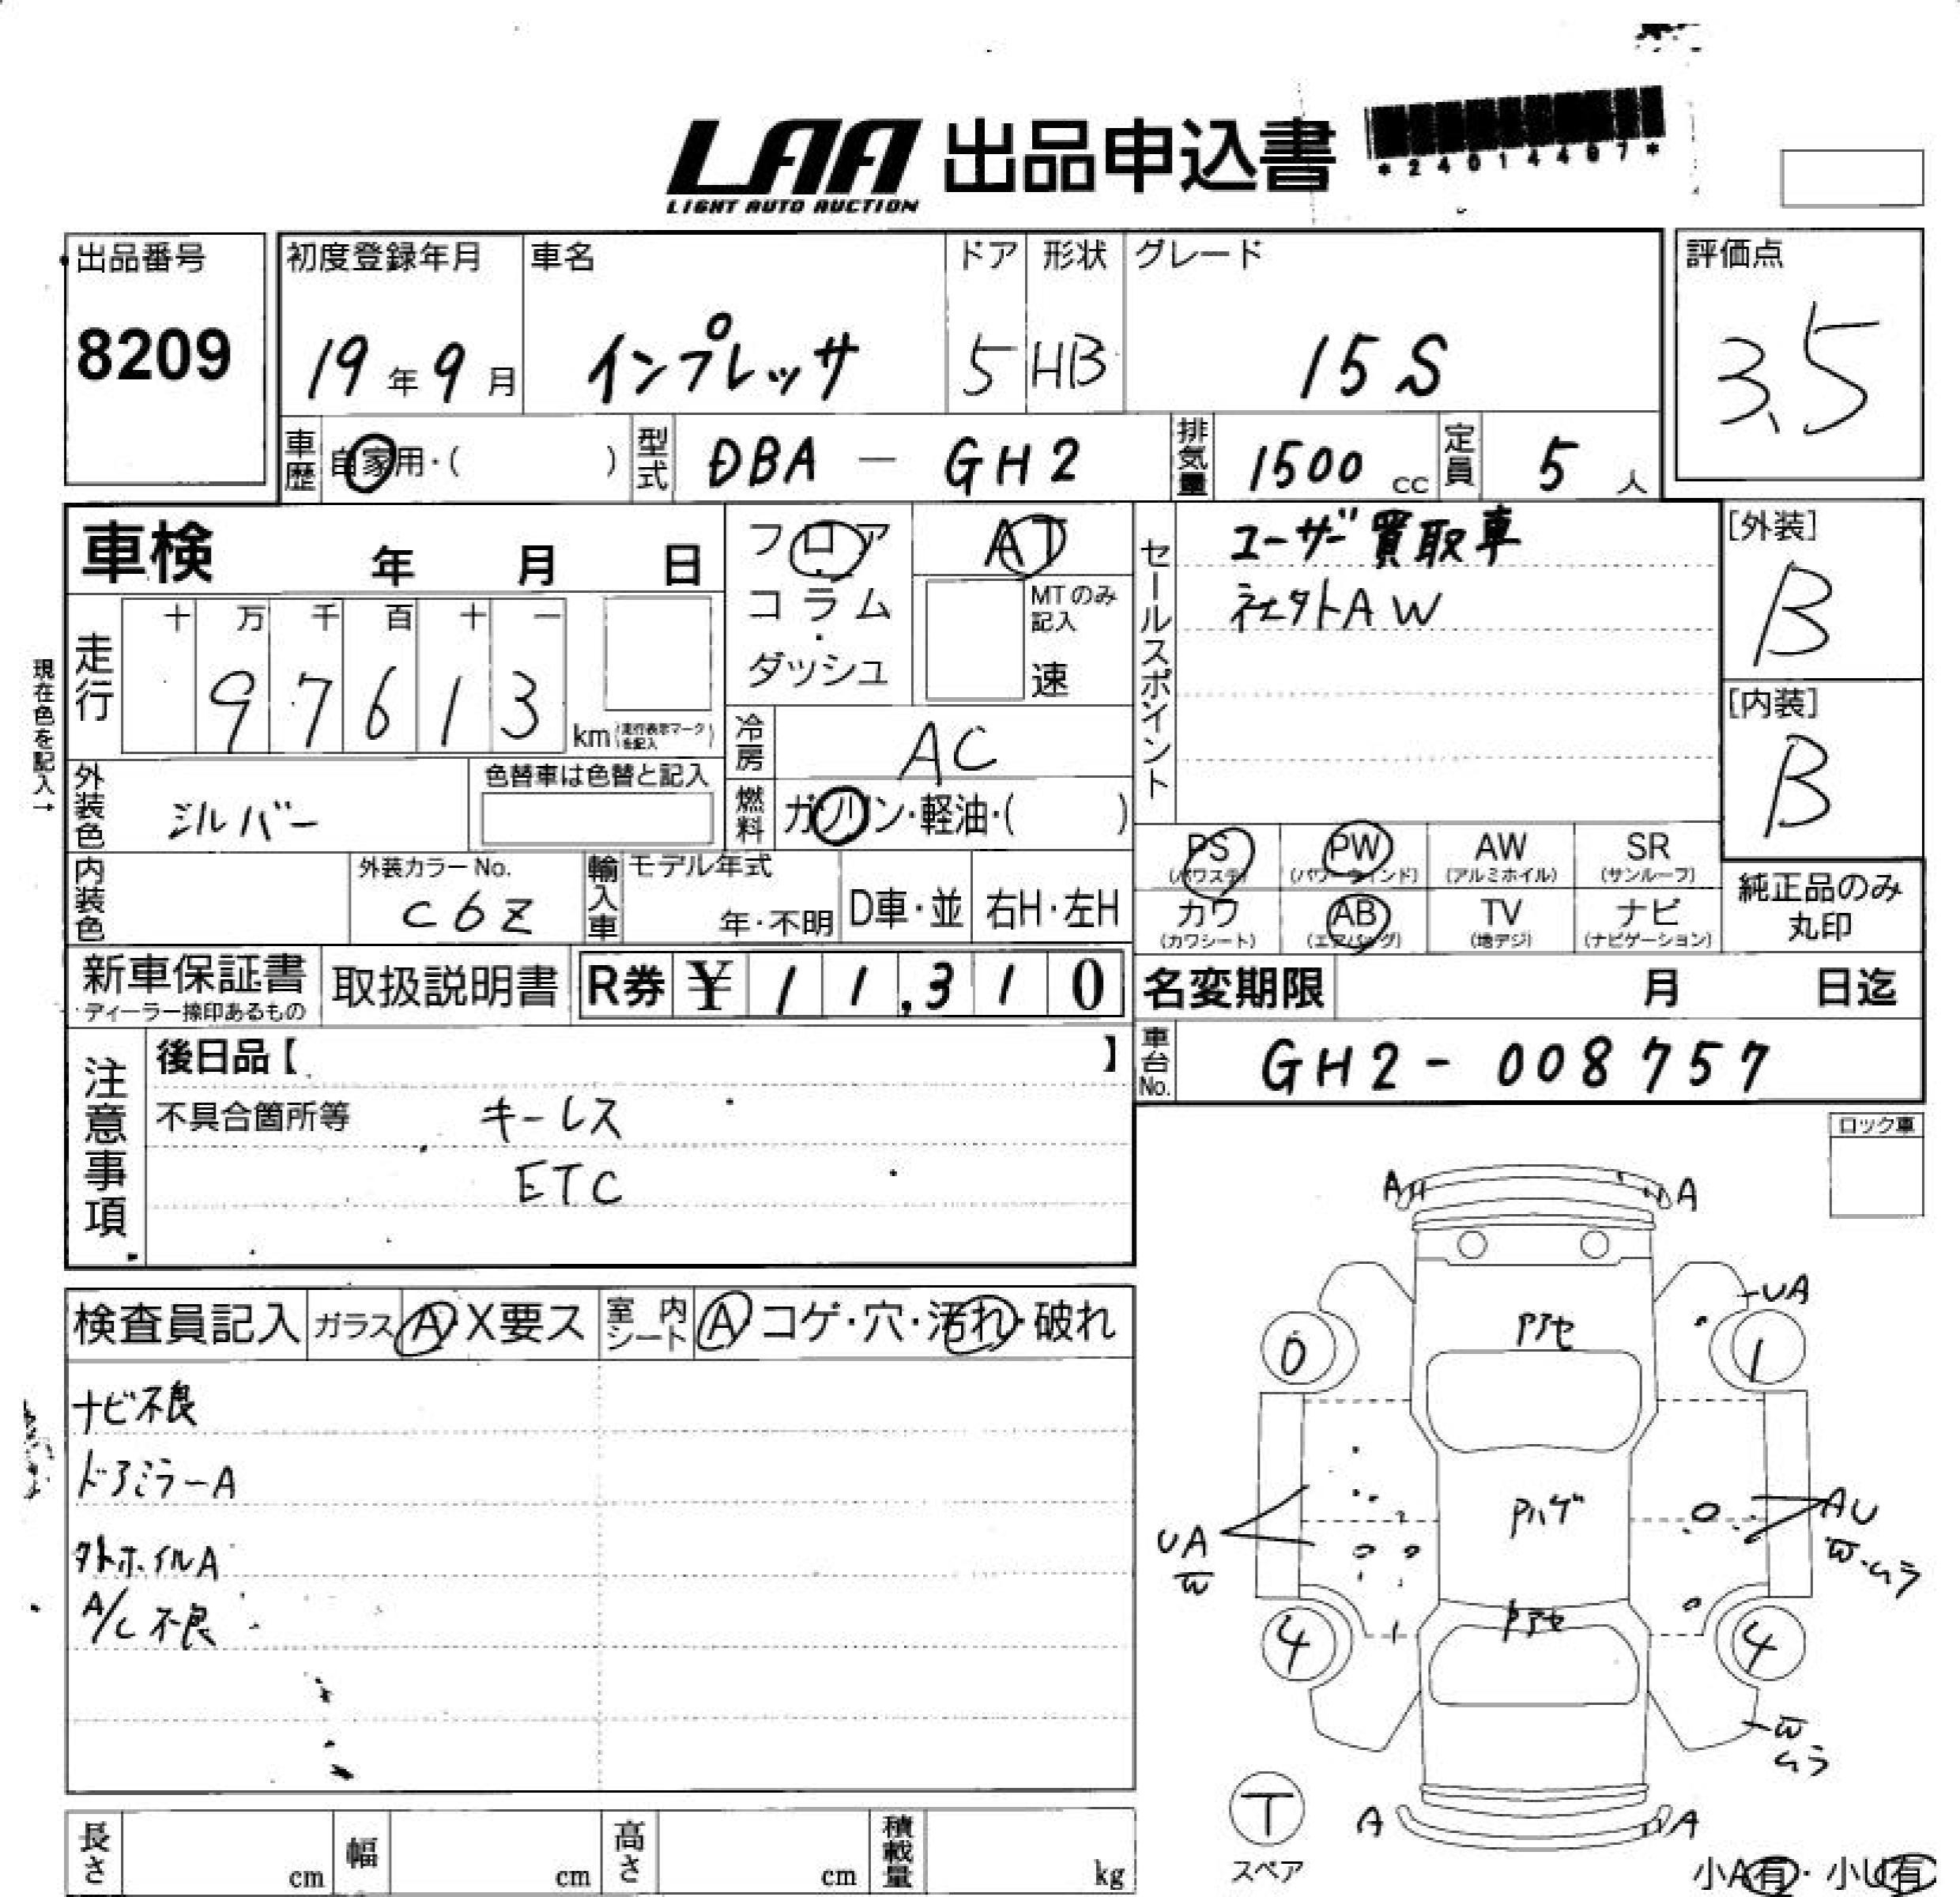 LAA 出品申込書
LIGHT AUTO AUCTION
出品番号
8209
初度登録年月
19年9月
車名
インプレッサ
ドア
5
形状
HB
グレード
15S
評価点
3.5
車歴 自家用・( )
型式 DBA-GH2
排気量 1500cc
定員 5人
車検 年 月 日
フロア・コラム・ダッシュ
AT
MTのみ記入
速
セールスポイント
ユーザー買取車
社外AW
[外装]
B
[内装]
B
現在色を記入→
走行
十 万 千 百 十 一
97613
km(走行表示マークを記入)
冷房 AC
燃料 ガソリン・軽油・( )
外装色 シルバー
色替車は色替と記入
PS (パワステ) PW (パワーウインド) AW (アルミホイル) SR (サンルーフ)
カワ (カワシート) AB (エアバッグ) TV (地デジ) ナビ (ナビゲーション)
純正品のみ丸印
内装色
外装カラーNo.
C6Z
輸入車
モデル年式
年・不明
D車・並
右H・左H
新車保証書
取扱説明書
R券 ¥11,310
名変期限 月 日迄
車台No. GH2-008757
注意事項
後日品【 】
不具合箇所等 キーレス
ETC
ロック車
検査員記入 ガラス A・X要ス 室内シート A コゲ・穴・汚れ・破れ
ナビ不良
ドアミラーA
外ホイルA
A/C不良
A A
UA
Pアセ
0 1
Pハゲ
UA
W
AU
W・ムラ
4 4
W
ムラ
T
スペア
A A
小A有・小U有
長さ cm 幅 cm 高さ cm 積載量 kg